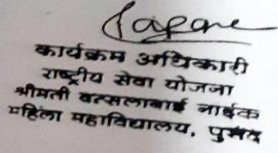 कार्यक्रम अधिकारी
राष्ट्रीय सेवा योजना
श्रीमती वत्सलाबाई नाईक
महिला महाविद्यालय, पुसद